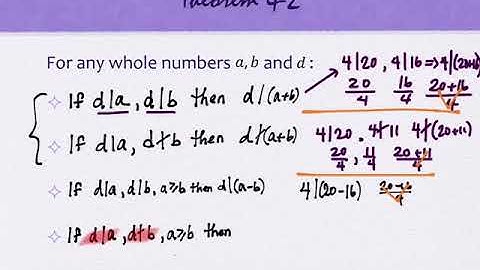 Theorem 4-2
For any whole numbers a, b and d :
If d|a , d|b then d|(a+b)
If d|a, d∤b then d∤(a+b)
If d|a, d|b, a≥b then d|(a-b)
If d|a , d∤b , a≥b then
4|20 , 4|16 ⇒ 4|(20+16)
20/4 16/4 20+16/4
4|20 , 4∤11 4∤(20+11)
20/4 , 11/4 20+11/4
4|(20-16) 20-16/4